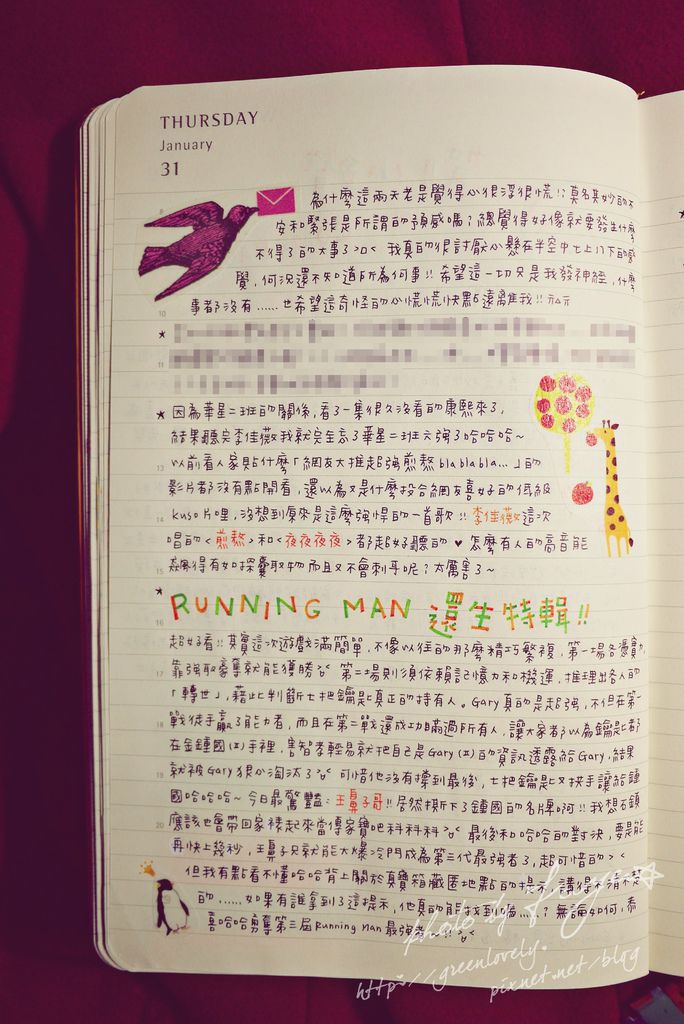 THURSDAY
January
31
為什麼這兩天老是覺得心很浮很慌!? 莫名其妙的不
安和緊張是所謂的預感嗎? 總覺得好像就要發生什麼
不得了的大事了>"< 我真的很討厭心懸在半空中七上八下的感
覺, 何況還不知道所為何事!! 希望這一切只是我發神經, 什麼
事都沒有...... 也希望這奇怪的心慌慌快點遠離我!!
10
11
★ 因為華星二班的關係, 看了一集很久沒看的康熙來了,
結果聽完李佳薇我就完全忘了華星二班六強了哈哈哈~
13 以前看人家貼什麼「網友大推超強煎熬blablabla...」的
影片都沒有點開看, 還以為又是什麼投合網友喜好的低級
14 kuso片哩, 沒想到原來是這麼強悍的一首歌!! 李佳薇這次
唱的<煎熬>和<夜夜夜夜>都超好聽的♥ 怎麼有人的高音能
15 飆得有如探囊取物而且又不會刺耳呢? 太厲害了~
★ RUNNING MAN 還生特輯!!
16
超好看!! 其實這次遊戲滿簡單, 不像以往的那麼精巧繁複, 第一場各憑實力
17 靠強取豪奪就能獲勝 第二場則須依賴記憶力和機運, 推理出各人的
「轉世」, 藉此判斷七把鑰匙真正的持有人。Gary真的是超強, 不但在第一
18 戰徒手贏了能力者, 而且在第二戰還成功瞞過所有人, 讓大家都以為鑰匙都
在金鍾國(II)手裡, 害智孝輕易就把自己是Gary(II)的資訊透露給Gary, 結果
19 就被Gary狠心淘汰了>"< 可惜他沒有撐到最後, 七把鑰匙又拱手讓給鍾
國哈哈哈~ 今日最驚豔: 王鼻子哥!! 居然撕下了鍾國的名牌啊!! 我想石鎮
20 應該也會帶回家裱起來當傳家寶吧科科科>"< 最後和哈哈的對決, 要是能
再快上幾秒, 王鼻子只就能大爆冷門成為第三代最強者了, 超可惜的> <
但我有點看不懂哈哈背上關於真寶箱藏匿地點的提示, 講得不清不楚
的...... 如果有誰拿到了這提示, 他真的能找到嘛......? 無論如何, 恭
喜哈哈勇奪第三屆Running Man最強者~!!
photo by
http://greenlovely.
pixnet.net/blog